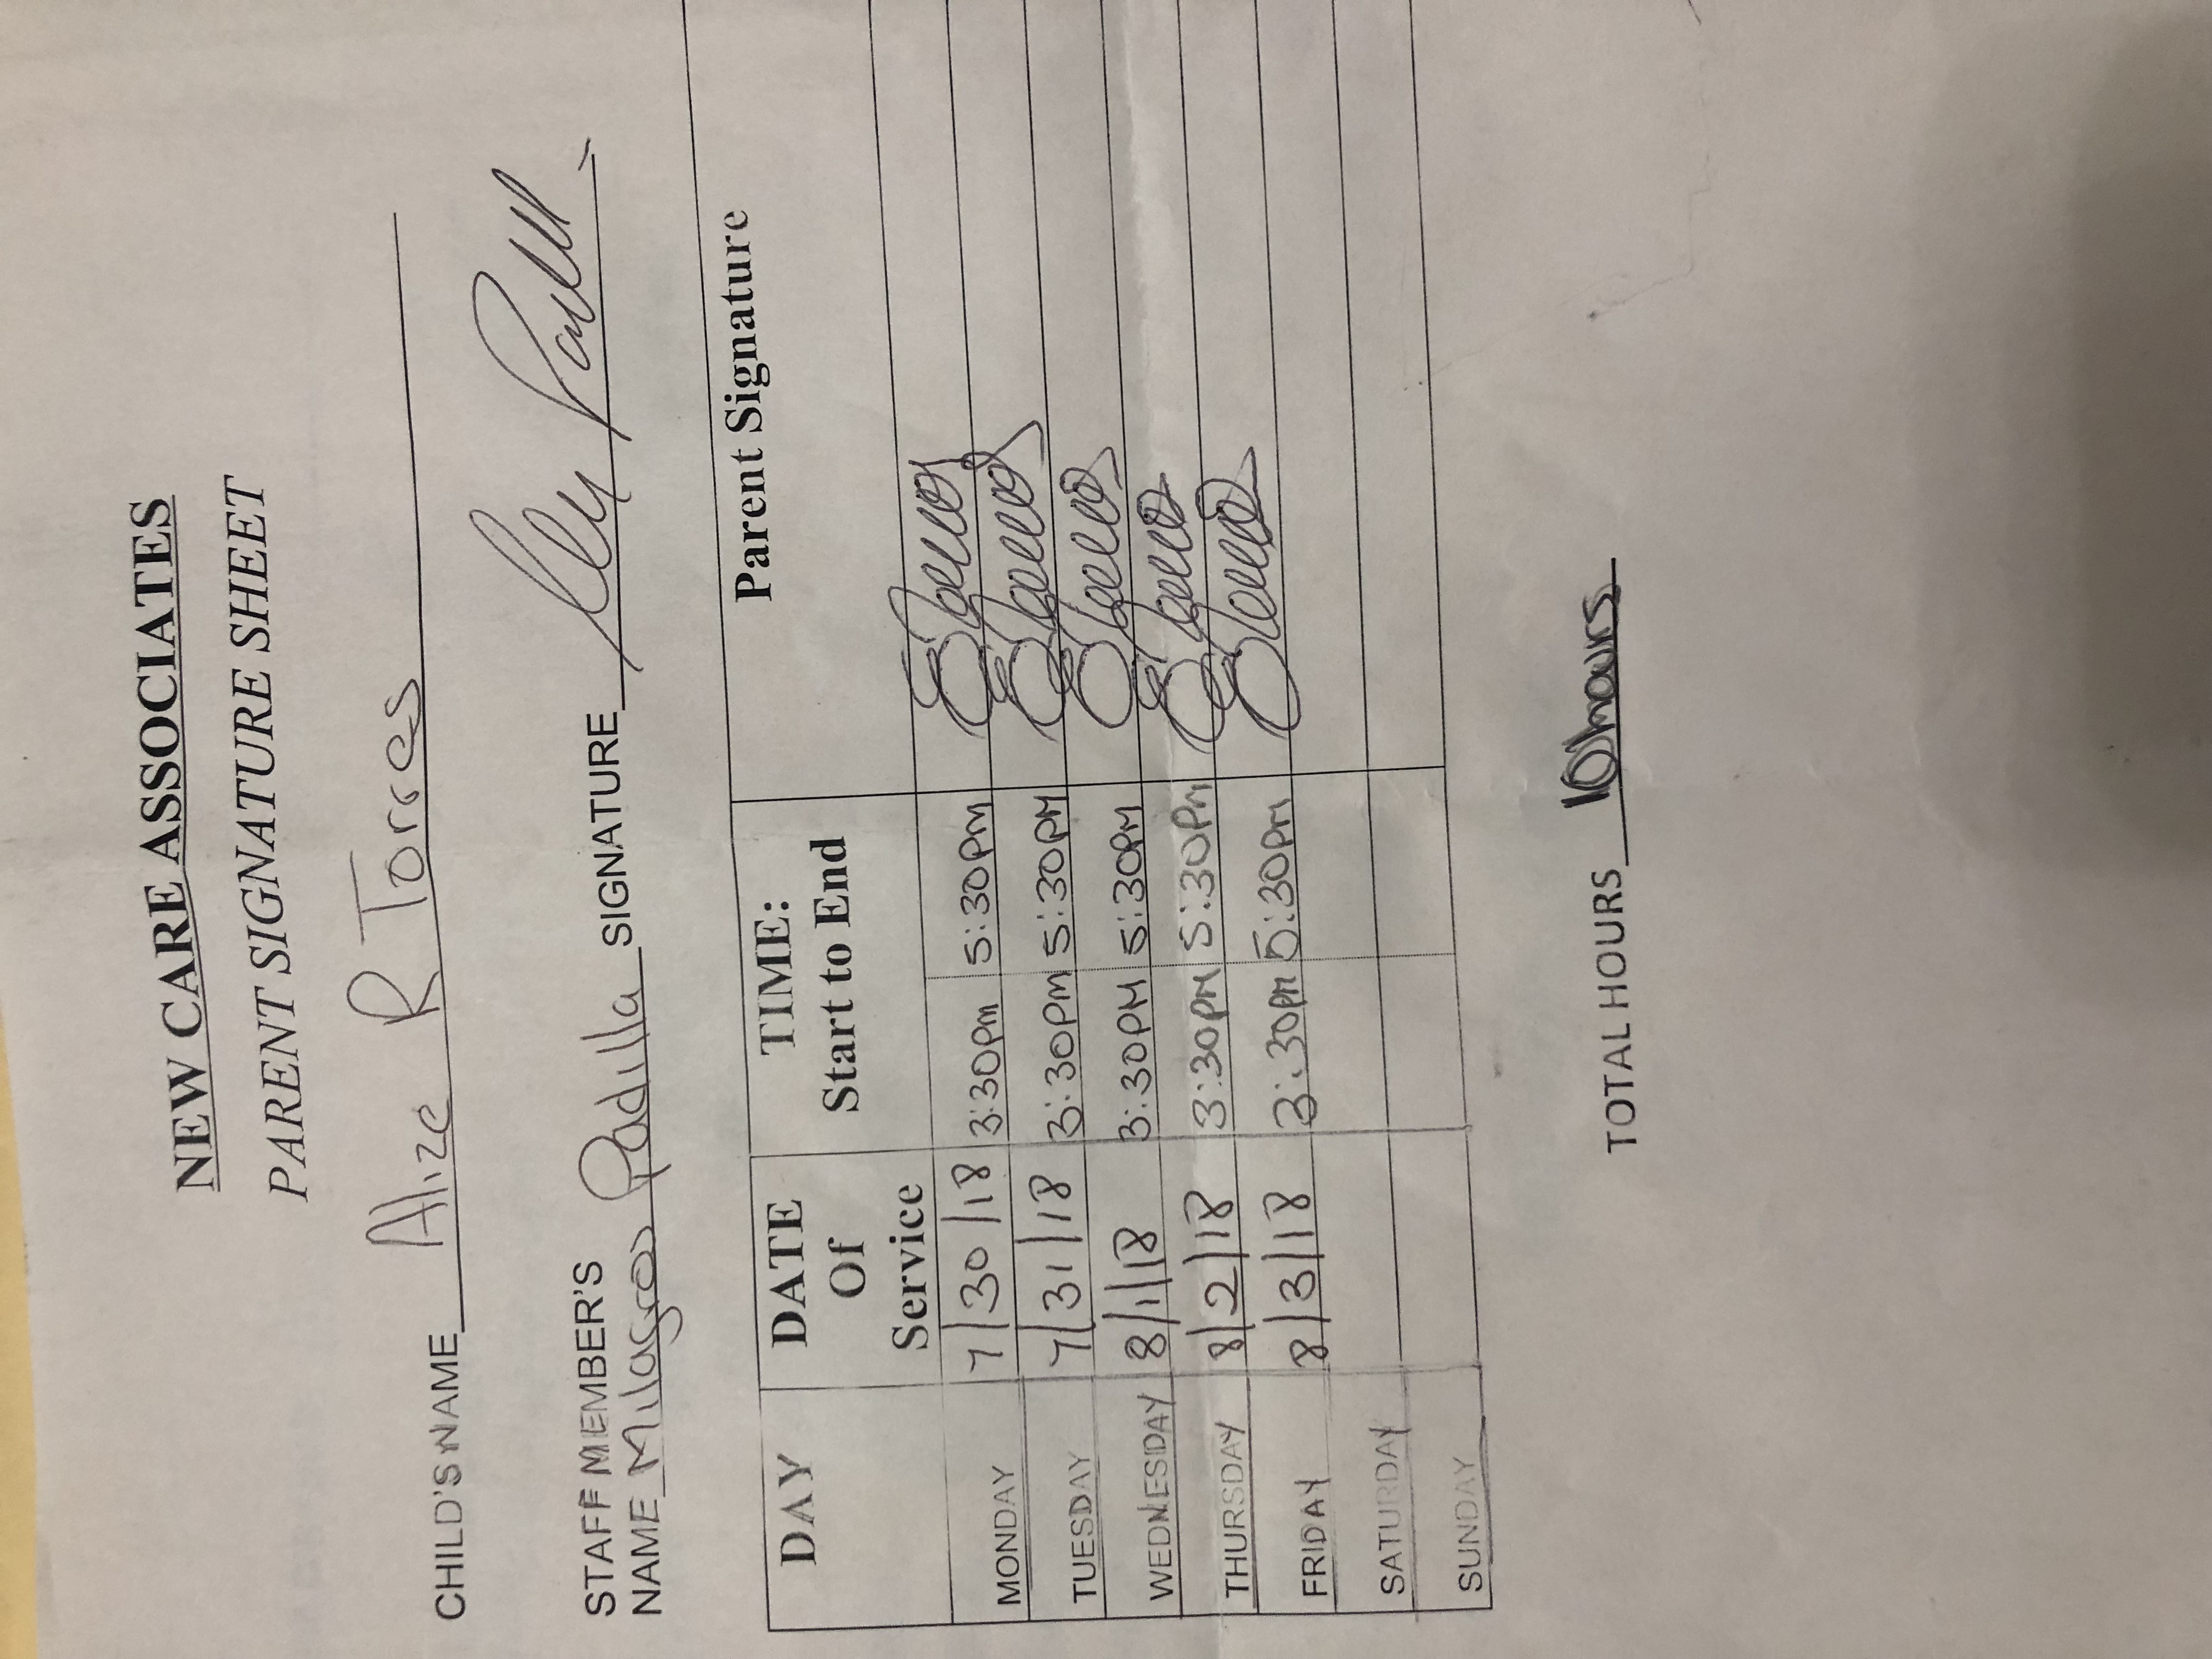 NEW CARE ASSOCIATES
PARENT SIGNATURE SHEET
CHILD'S NAME Alize R Torres
STAFF MEMBER'S
NAME Milagros Padilla SIGNATURE
DAY DATE Of Service TIME: Start to End Parent Signature
MONDAY 7/30/18 3:30pm 5:30pm
TUESDAY 7/31/18 3:30pm 5:30PM
WEDNESDAY 8/1/18 3:30PM 5:30PM
THURSDAY 8/2/18 3:30pm 5:30Pm
FRIDAY 8/3/18 3:30pm 5:30pm
SATURDAY
SUNDAY
TOTAL HOURS 10 hours